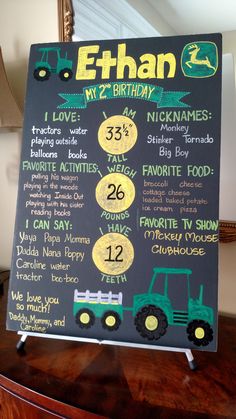 Ethan
MY 2ND BIRTHDAY
I LOVE:
tractors water
playing outside
balloons books
FAVORITE ACTIVITIES:
pulling his wagon
playing in the woods
watching Inside Out
playing with cider
reading books
I CAN SAY:
Yaya Papa Momma
Dadda Nana Poppy
Caroline water
tractor boo-boo
We love you
so much!
Daddy, Mommy, and
Caroline
I AM
33½
TALL
WEIGH
26
POUNDS
I HAVE
12
TEETH
NICKNAMES:
Monkey
Stinker Tornado
Big Boy
FAVORITE FOOD:
broccoli cheese
cottage cheese
loaded baked potato
ice cream
FAVORITE TV SHOW
MICKEY MOUSE
CLUBHOUSE